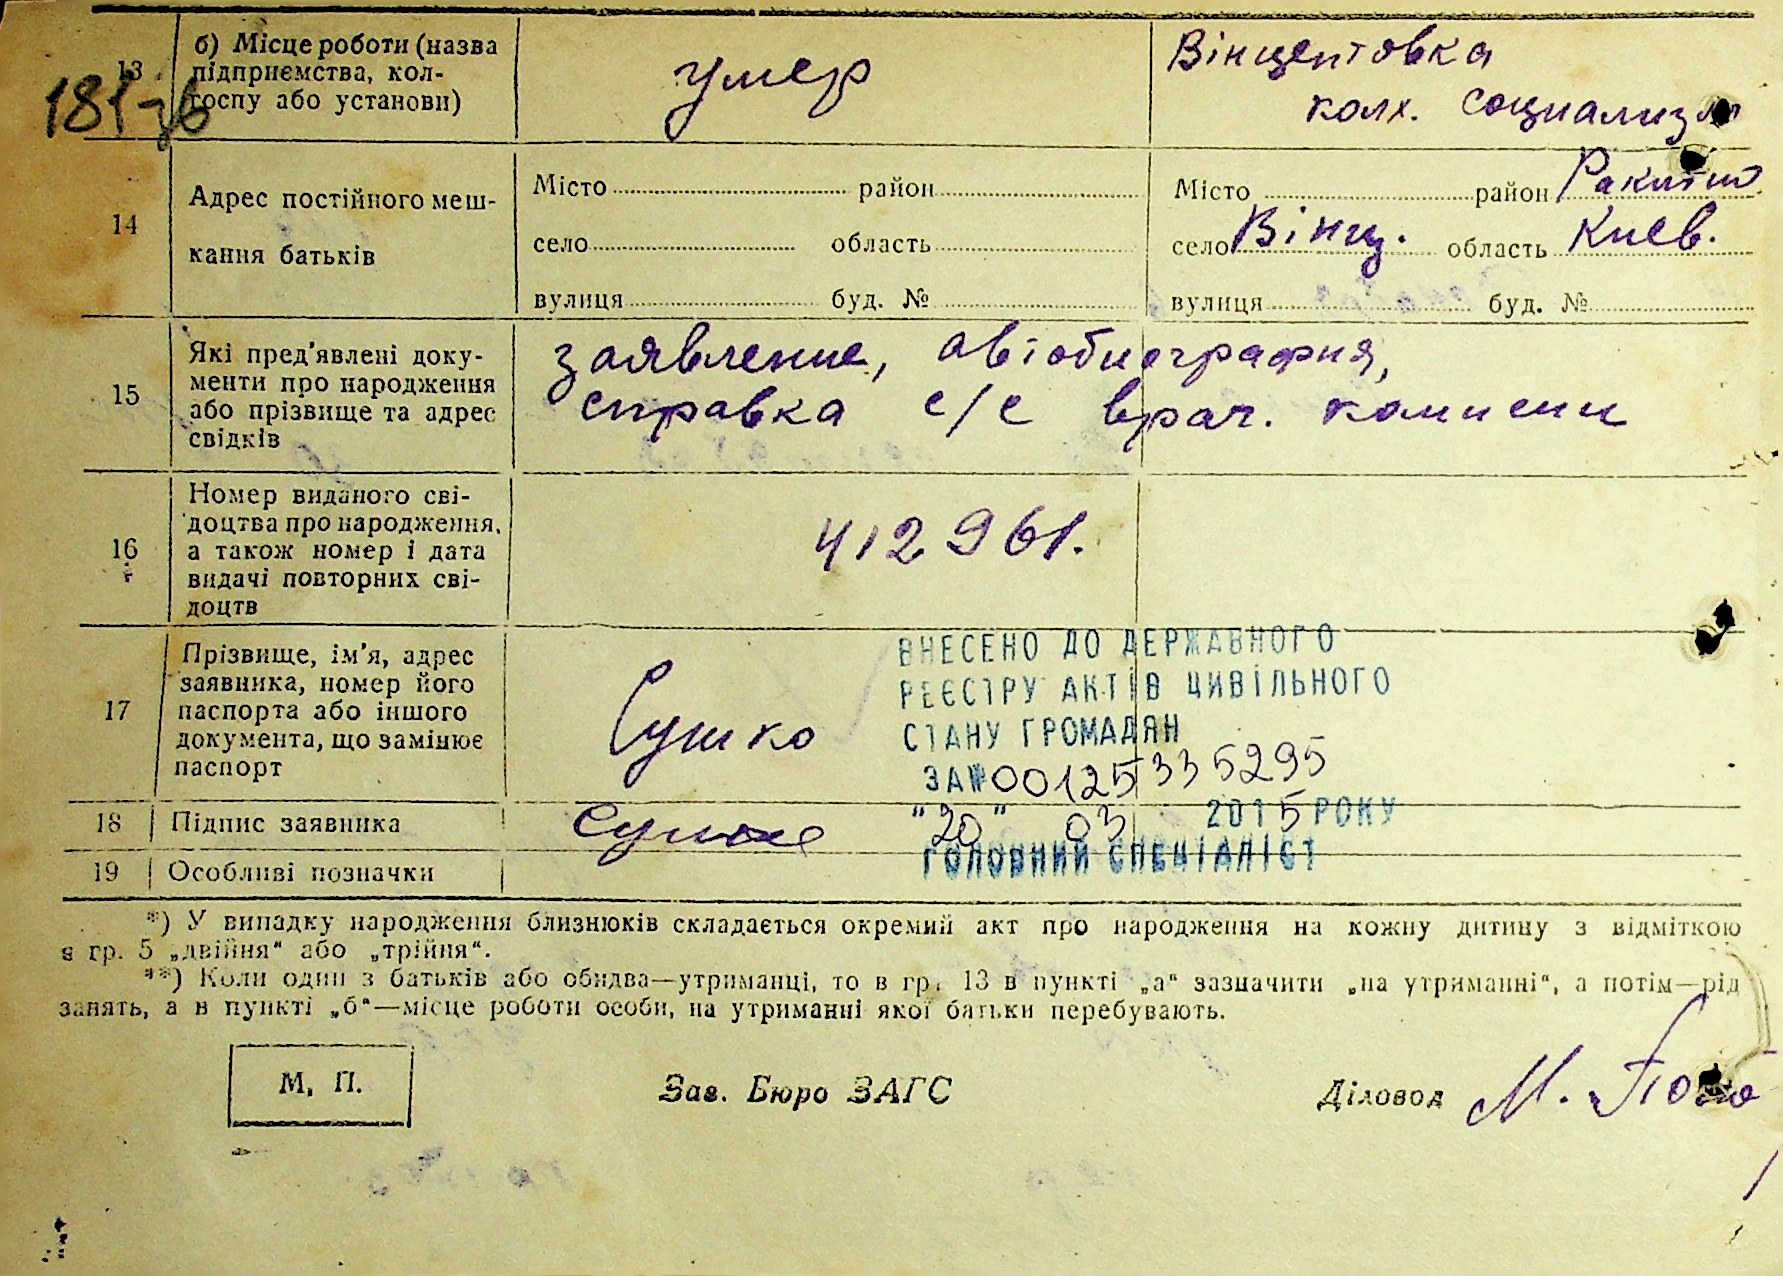 13
б) Місце роботи (назва
підприємства, кол-
госпу або установи)
умер
Вінцентовка
колх. социализм
14
Адрес постійного меш-
кання батьків
Місто район
село область
вулиця буд. №
Місто район Ракитно
село Вінц. область Киев.
вулиця буд. №
15
Які пред'явлені доку-
менти про народження
або прізвище та адрес
свідків
заявление, автобиография,
справка с/с врач. комисии
16
Номер виданого сві-
доцтва про народження,
а також номер і дата
видачі повторних сві-
доцтв
412961.
17
Прізвище, ім'я, адрес
заявника, номер його
паспорта або іншого
документа, що замінює
паспорт
Сушко
ВНЕСЕНО ДО ДЕРЖАВНОГО
РЕЄСТРУ АКТІВ ЦИВІЛЬНОГО
СТАНУ ГРОМАДЯН
ЗА№00125335295
"20" 03 2015 РОКУ
ГОЛОВНИЙ СПЕЦІАЛІСТ
18 Підпис заявника
Сушко
19 Особливі позначки
*) У випадку народження близнюків складається окремий акт про народження на кожну дитину з відміткою
в гр. 5 „двійня“ або „трійня“.
**) Коли один з батьків або обидва—утриманці, то в гр. 13 в пункті „а“ зазначити „на утриманні“, а потім—рід
занять, а в пункті „б“—місце роботи особи, на утриманні якої батьки перебувають.
М. П.
Зав. Бюро ЗАГС
Діловод М.